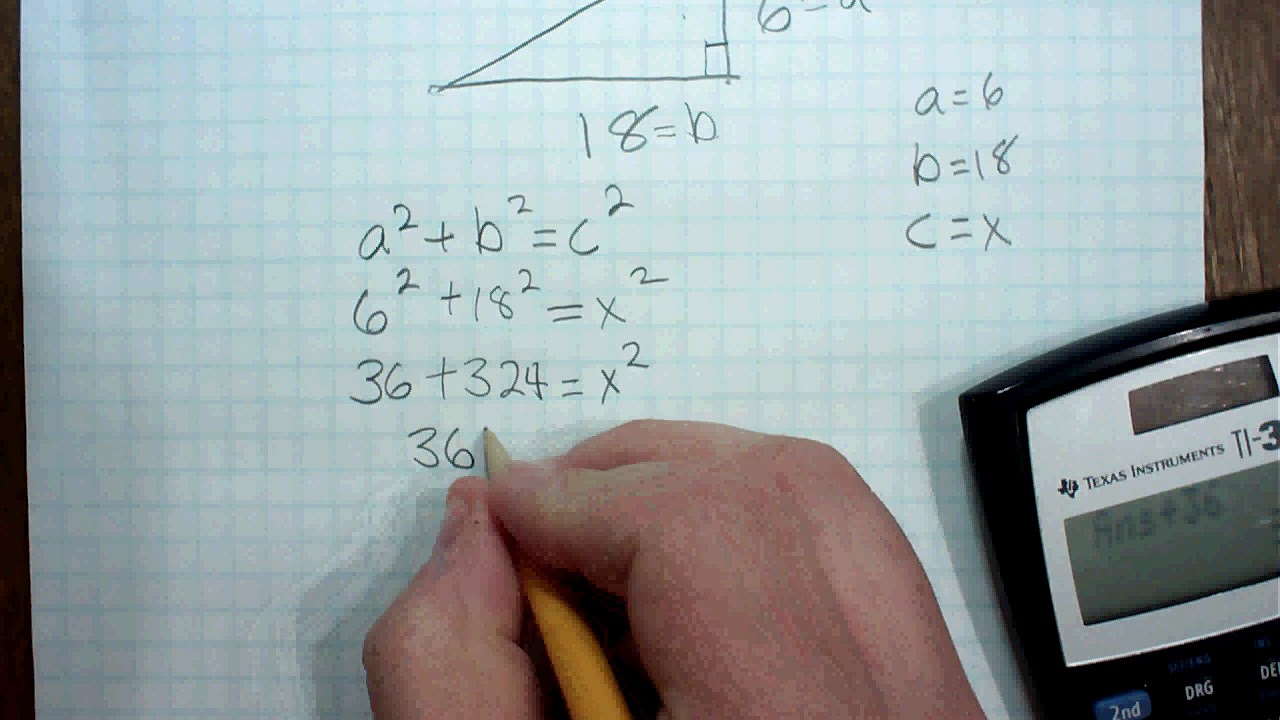 6=a
18=b
a=6
b=18
c=x
a²+b²=c²
6²+18²=x²
36+324=x²
36
TEXAS INSTRUMENTS TI-3
Ans+36
2nd
DRG